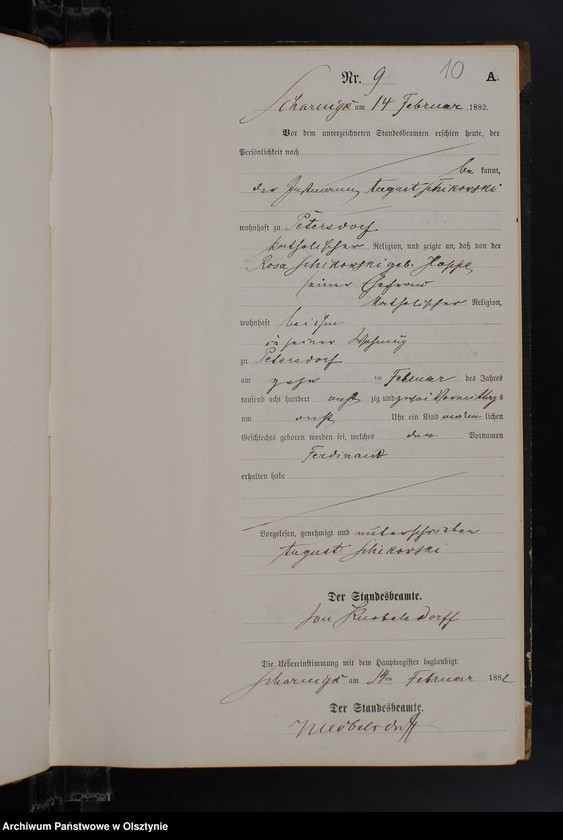 Nr. 9 10 A.
Scharnigk am 14 Februar 1882.
Vor dem unterzeichneten Standesbeamten erschien heute, der
Persönlichkeit nach
be kannt,
der August Schikorski
wohnhaft zu Petersdorf
katholischer Religion, und zeigte an, daß von der
Rosa Schikorski geb. Hoppe
seiner Ehefrau
katholischer Religion,
wohnhaft bei ihm
in seiner Wohnung
zu Petersdorf
am zehn ten Februar des Jahres
tausend acht hundert acht zig und zwei Vormittags
um acht Uhr ein Kind männ lichen
Geschlechts geboren worden sei, welches den Vornamen
Ferdinand
erhalten habe
Vorgelesen, genehmigt und unterschrieben
August Schikorski
Der Standesbeamte.
Knobelsdorff
Die Uebereinstimmung mit dem Hauptregister beglaubigt
Scharnigk am 14ten Februar 1882
Der Standesbeamte.
Knobelsdorff
Archiwum Państwowe w Olsztynie